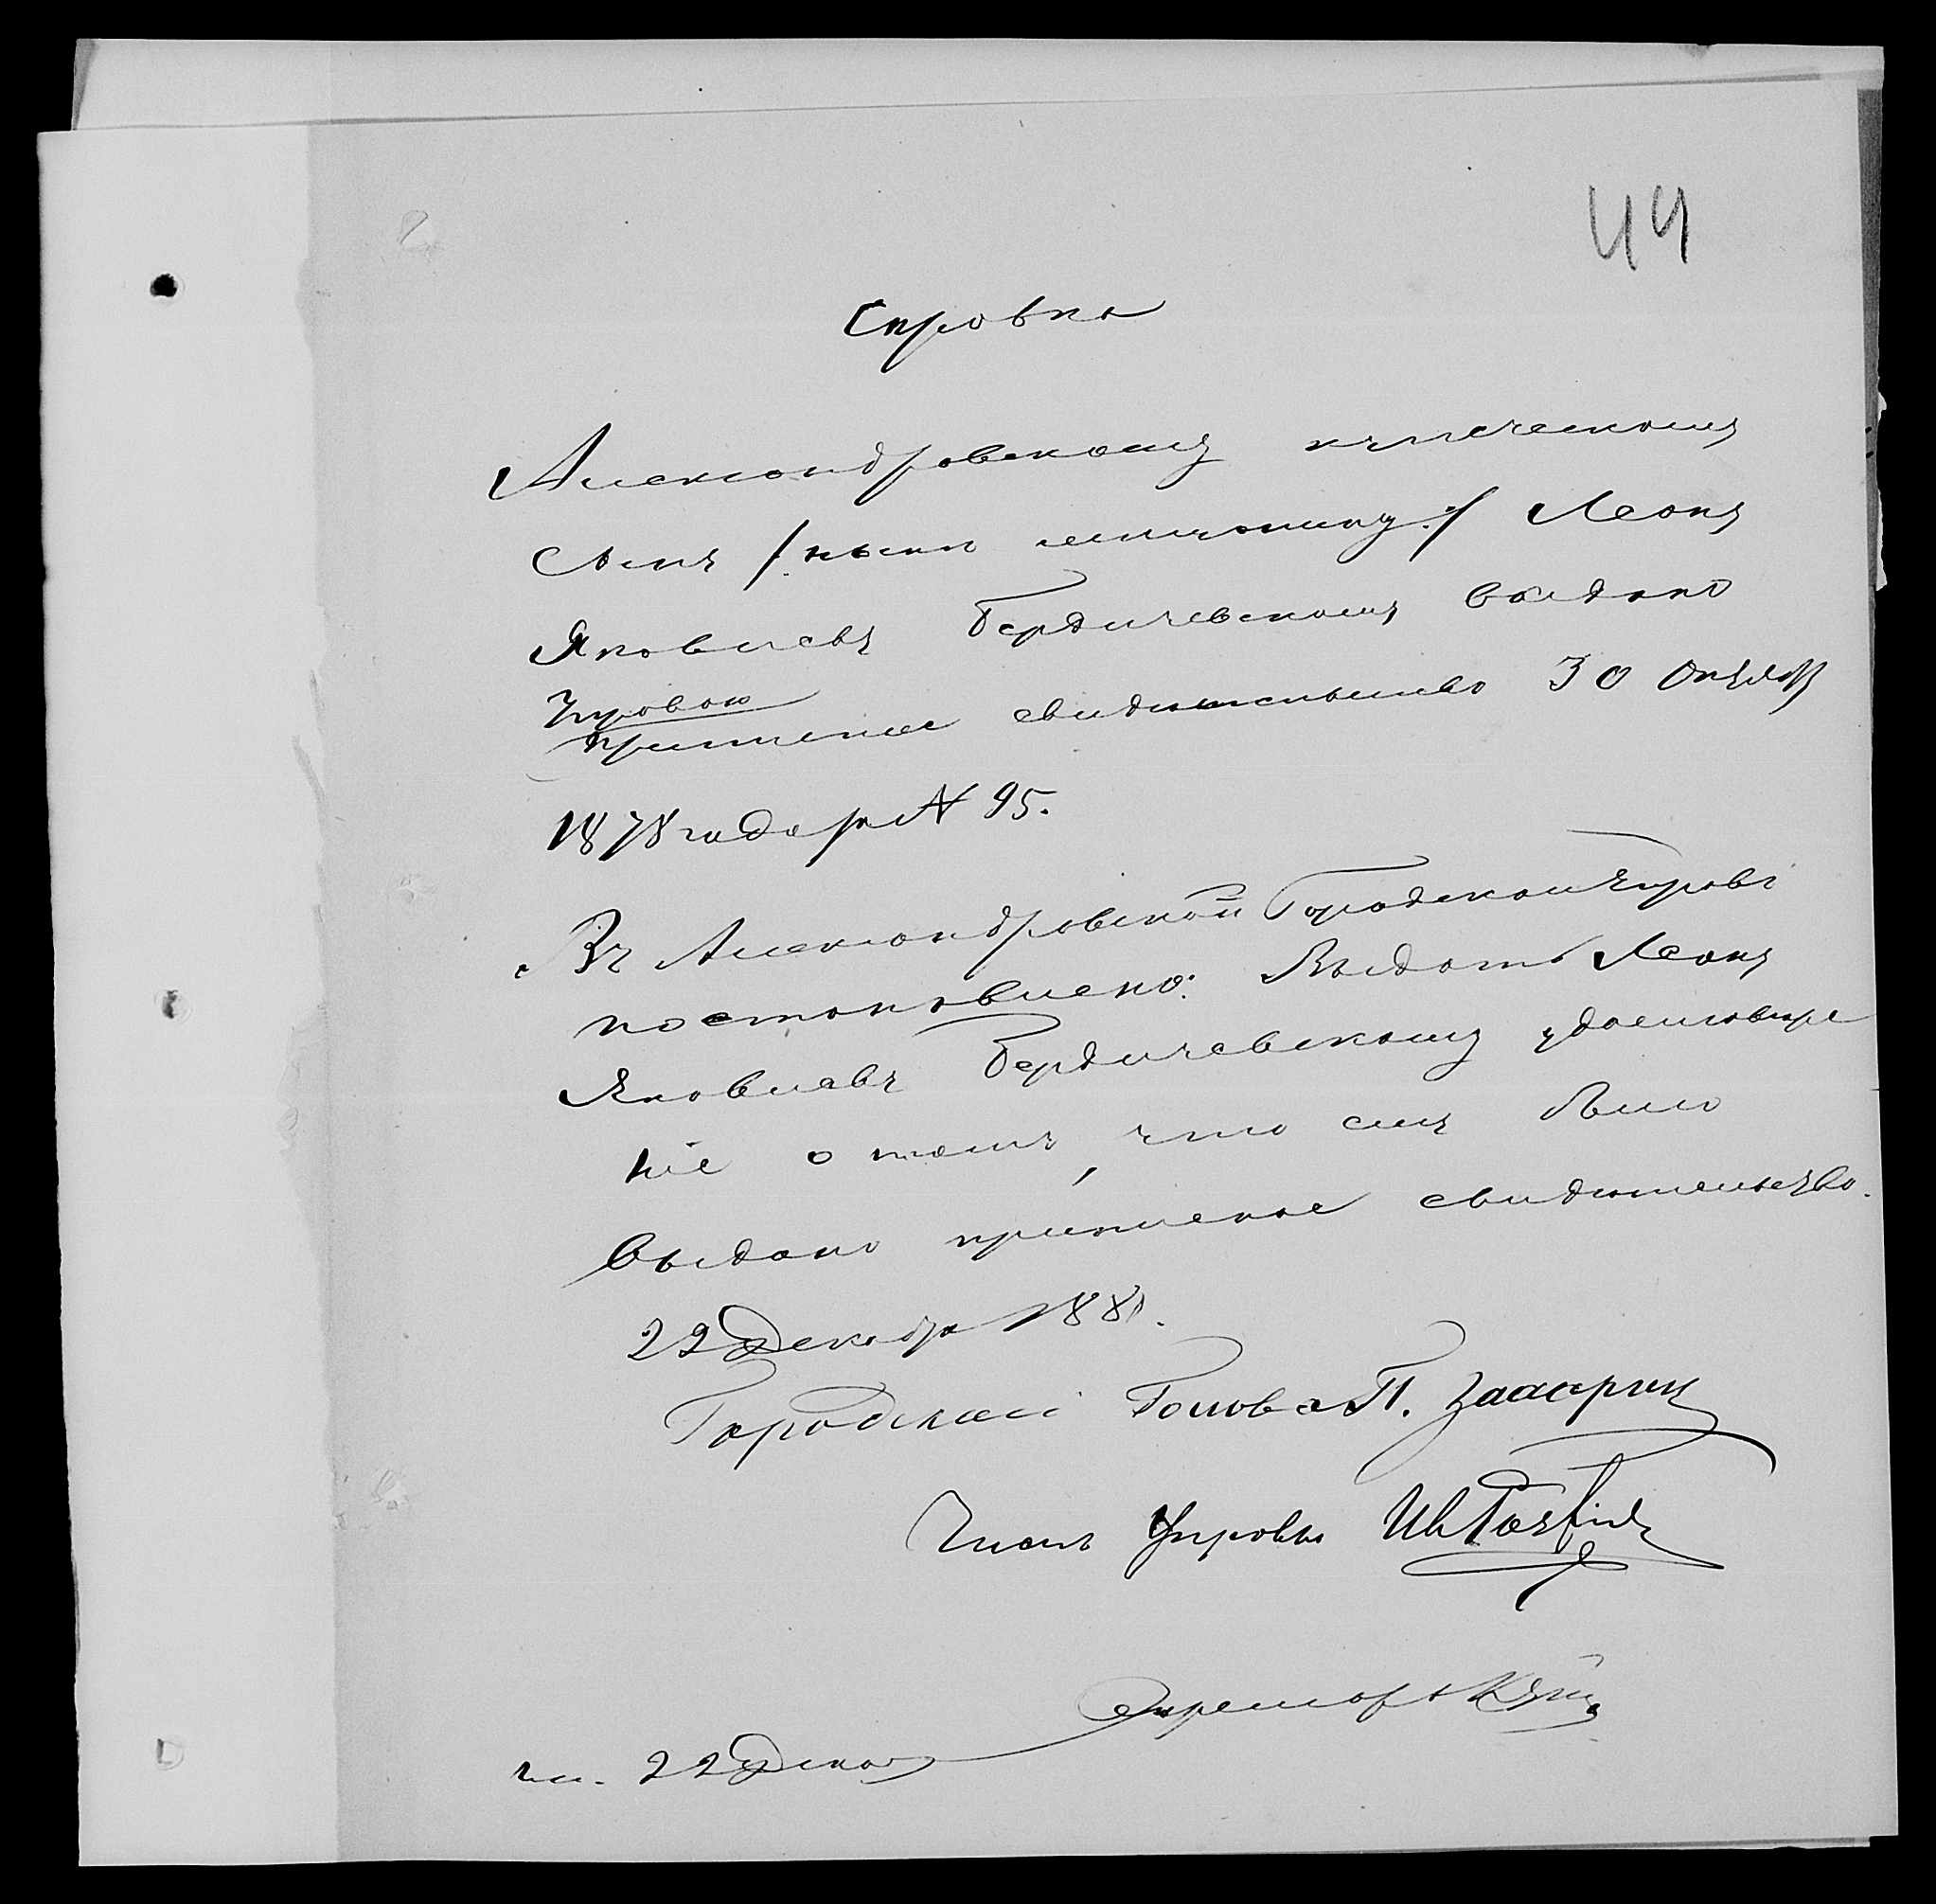 44
Справка
Александровскому купеческому
сыну /: нынѣ мѣщанину :/ Леону
Яковлеву Бердичевскому выдано
Управою
приписное свидѣтельство 30 Октября
1878 года за № 95.
Въ Александровской Городской Управѣ
постановлено: Выдать Леону
Яковлеву Бердичевскому удостовѣре
ніе о томъ, что ему было
выдано приписное свидѣтельство.
22 Декабря 188
Городской Голова П.
Членъ Управы
Секретарь
22 Декаб